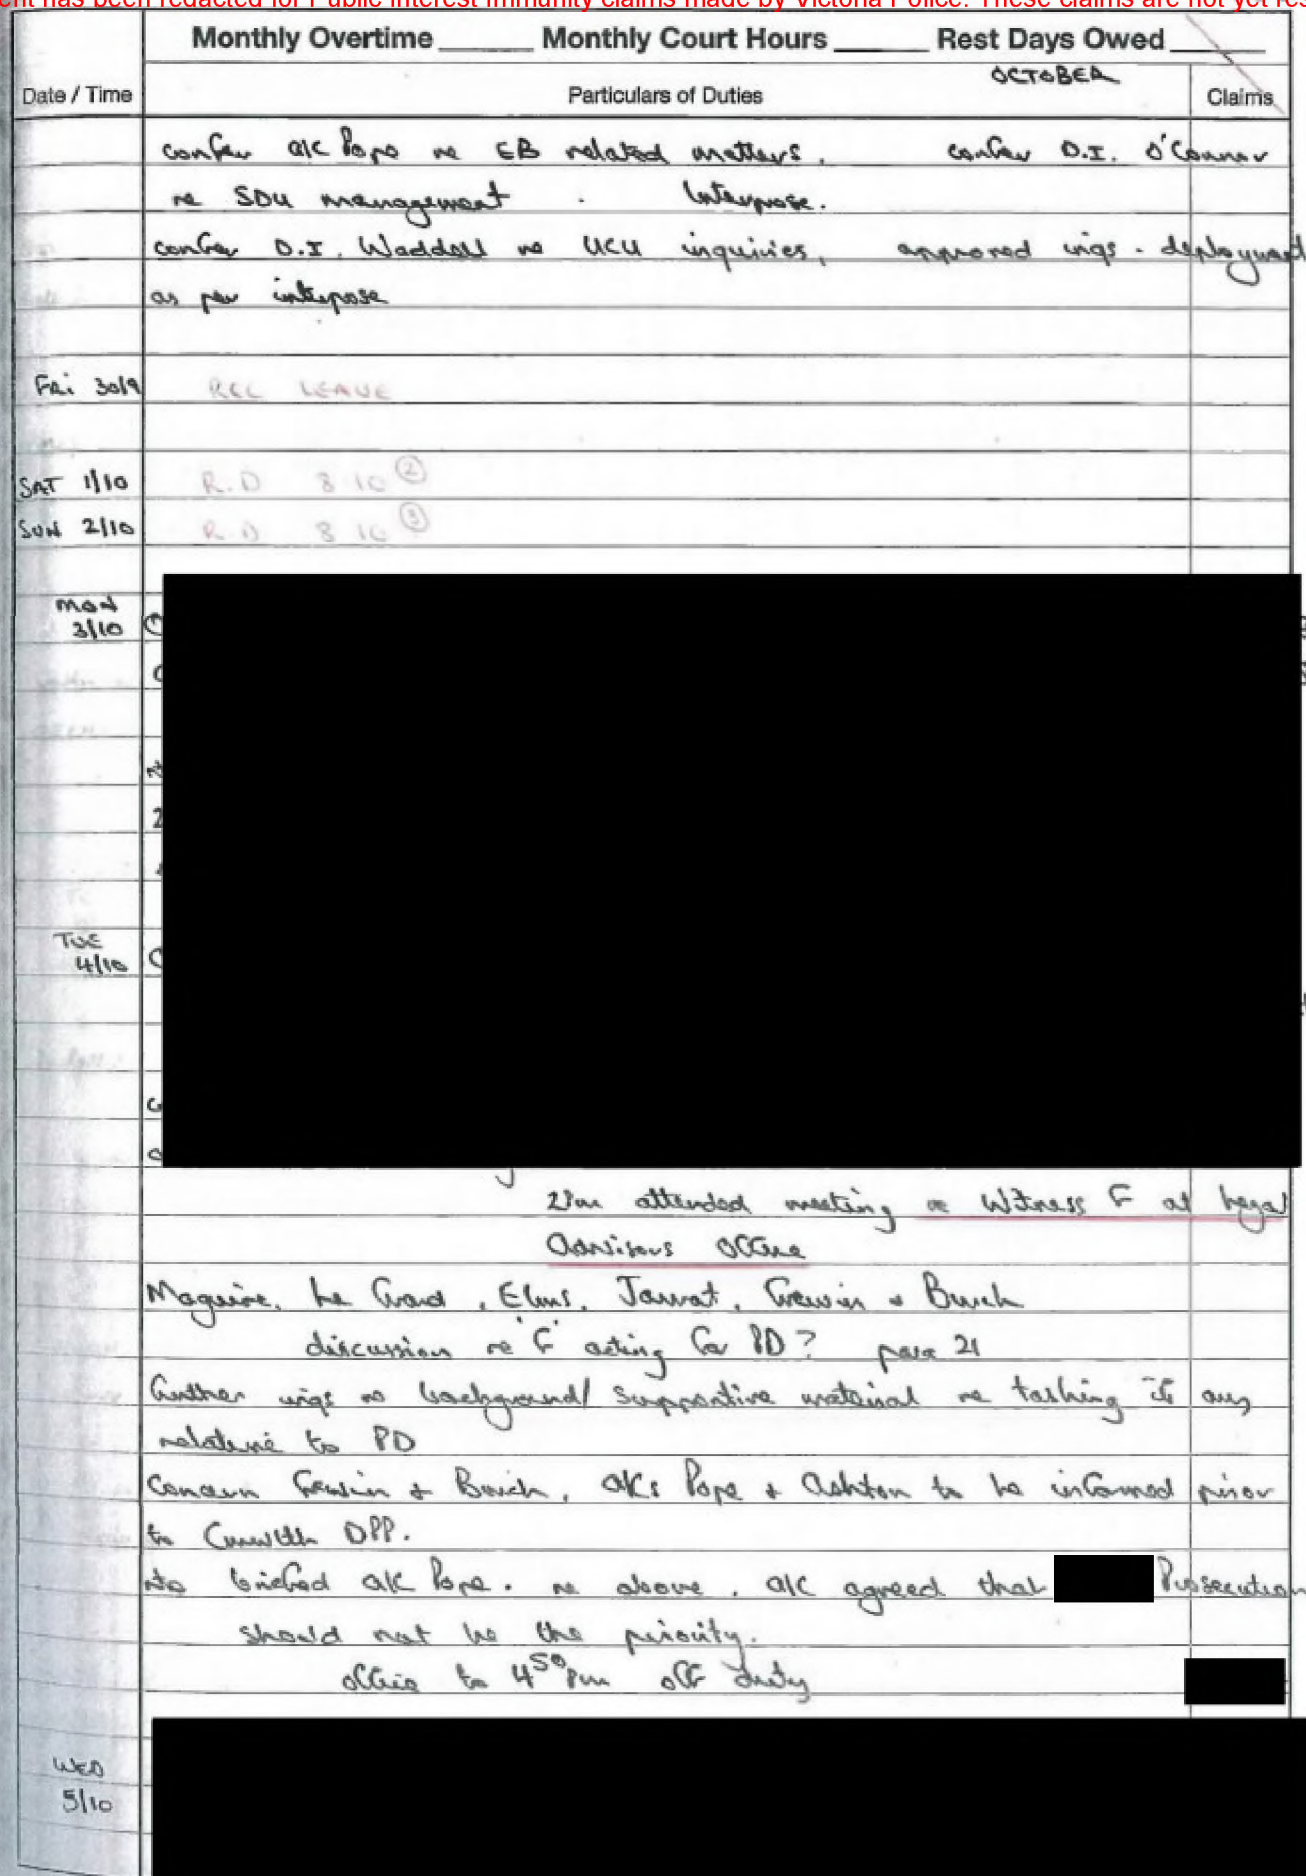 ent has been redacted for Public Interest Immunity claims made by Victoria Police. These claims are not yet res
Monthly Overtime ______ Monthly Court Hours ______ Rest Days Owed ______
OCTOBER
Date / Time Particulars of Duties Claims
confer a/c Pope re EB related matters. confer D.I. O'Connor
re SDU management . Interpose.
confer D.I. Waddell re UCU inquiries, approved inqs - deployment
as per interpose
Fri 30/9 REC LEAVE
SAT 1/10 R.D 8 10 ②
SUN 2/10 R.D 8 10 ③
MON
3/10
TUE
4/10
2pm attended meeting re Witness F at Legal
Advisors Office
Maguire, Le Grand, Elms, Jarrat, Frewin & Buick
discussion re 'F' acting for PD? para 21
further inqs re background/ supportive material re tasking if any
relative to PD
Concern Frewin & Buick, a/cs Pope & Ashton to be informed prior
to Cmwlth DPP.
briefed a/c Pope. re above. a/c agreed that Prosecution
should not be the priority.
office to 4⁵⁰pm off duty
WED
5/10